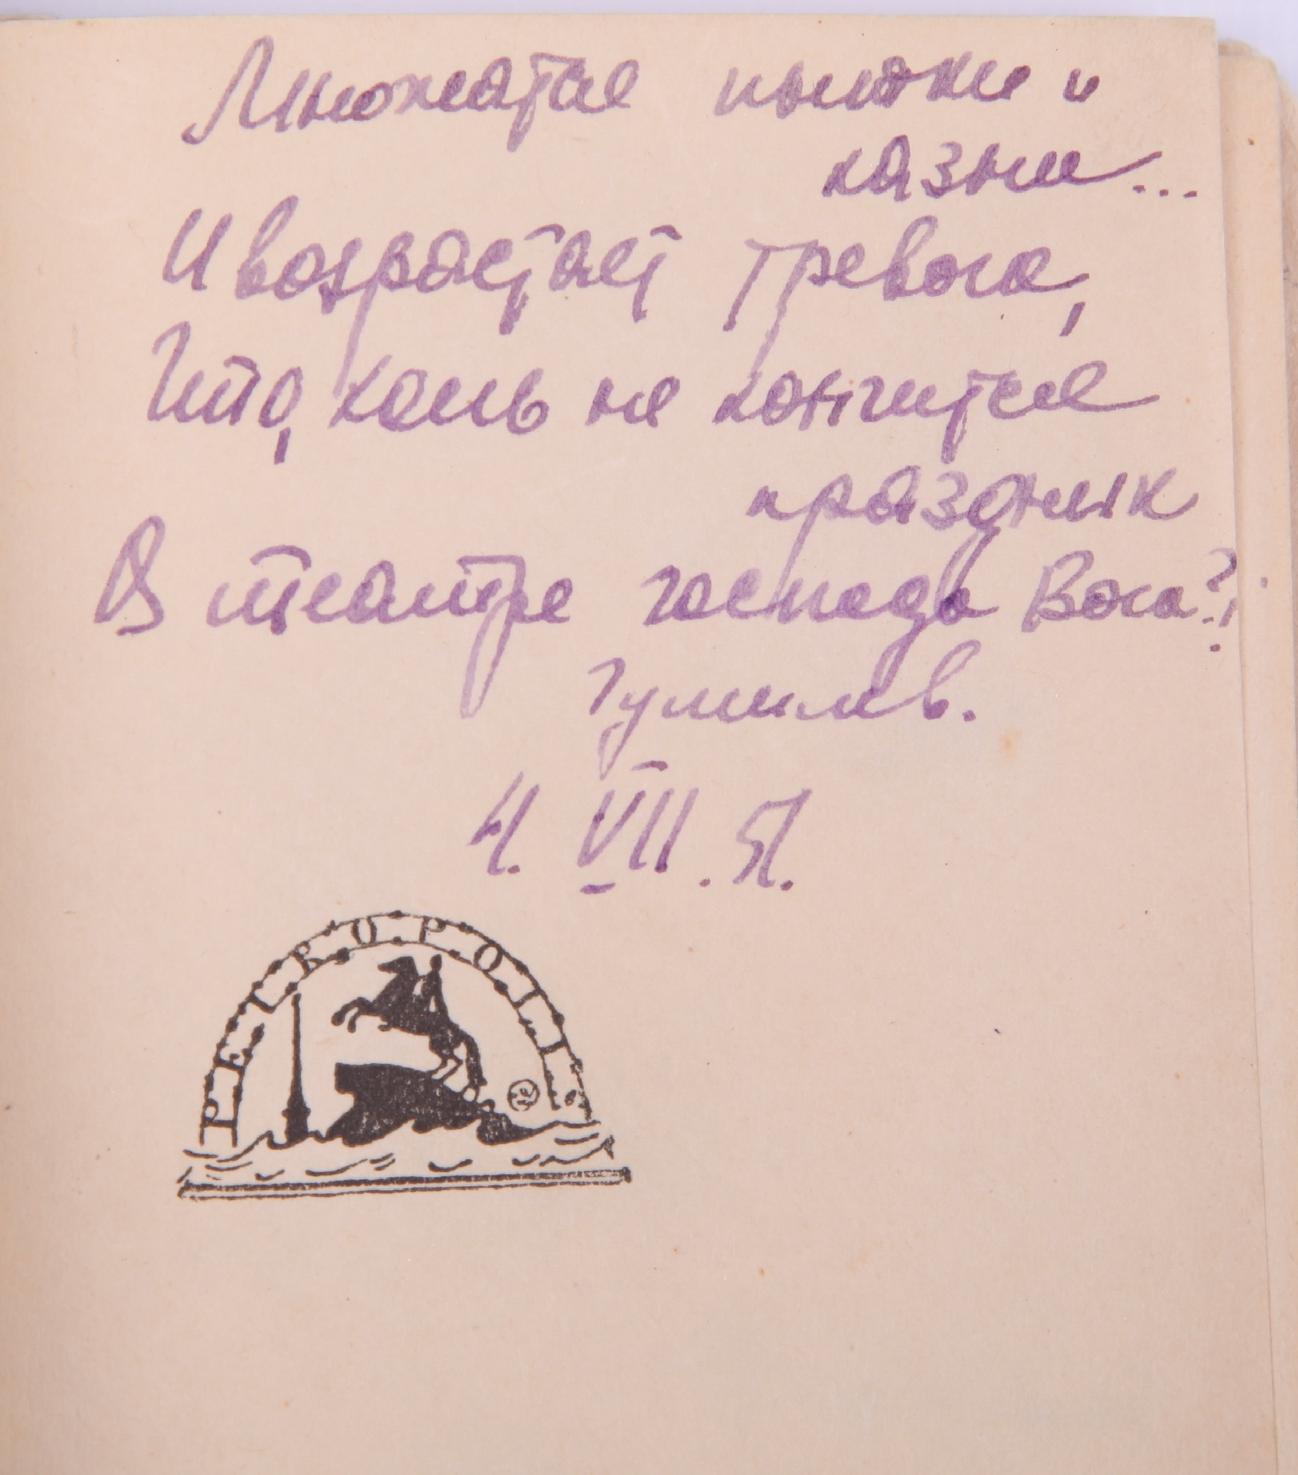 Множатся пытки и
казни...
И возрастает тревога,
Что, коль не кончится
праздник
В театре господа Бога?!
Гумилев.
4. VII. 51.
PETROPOLIS